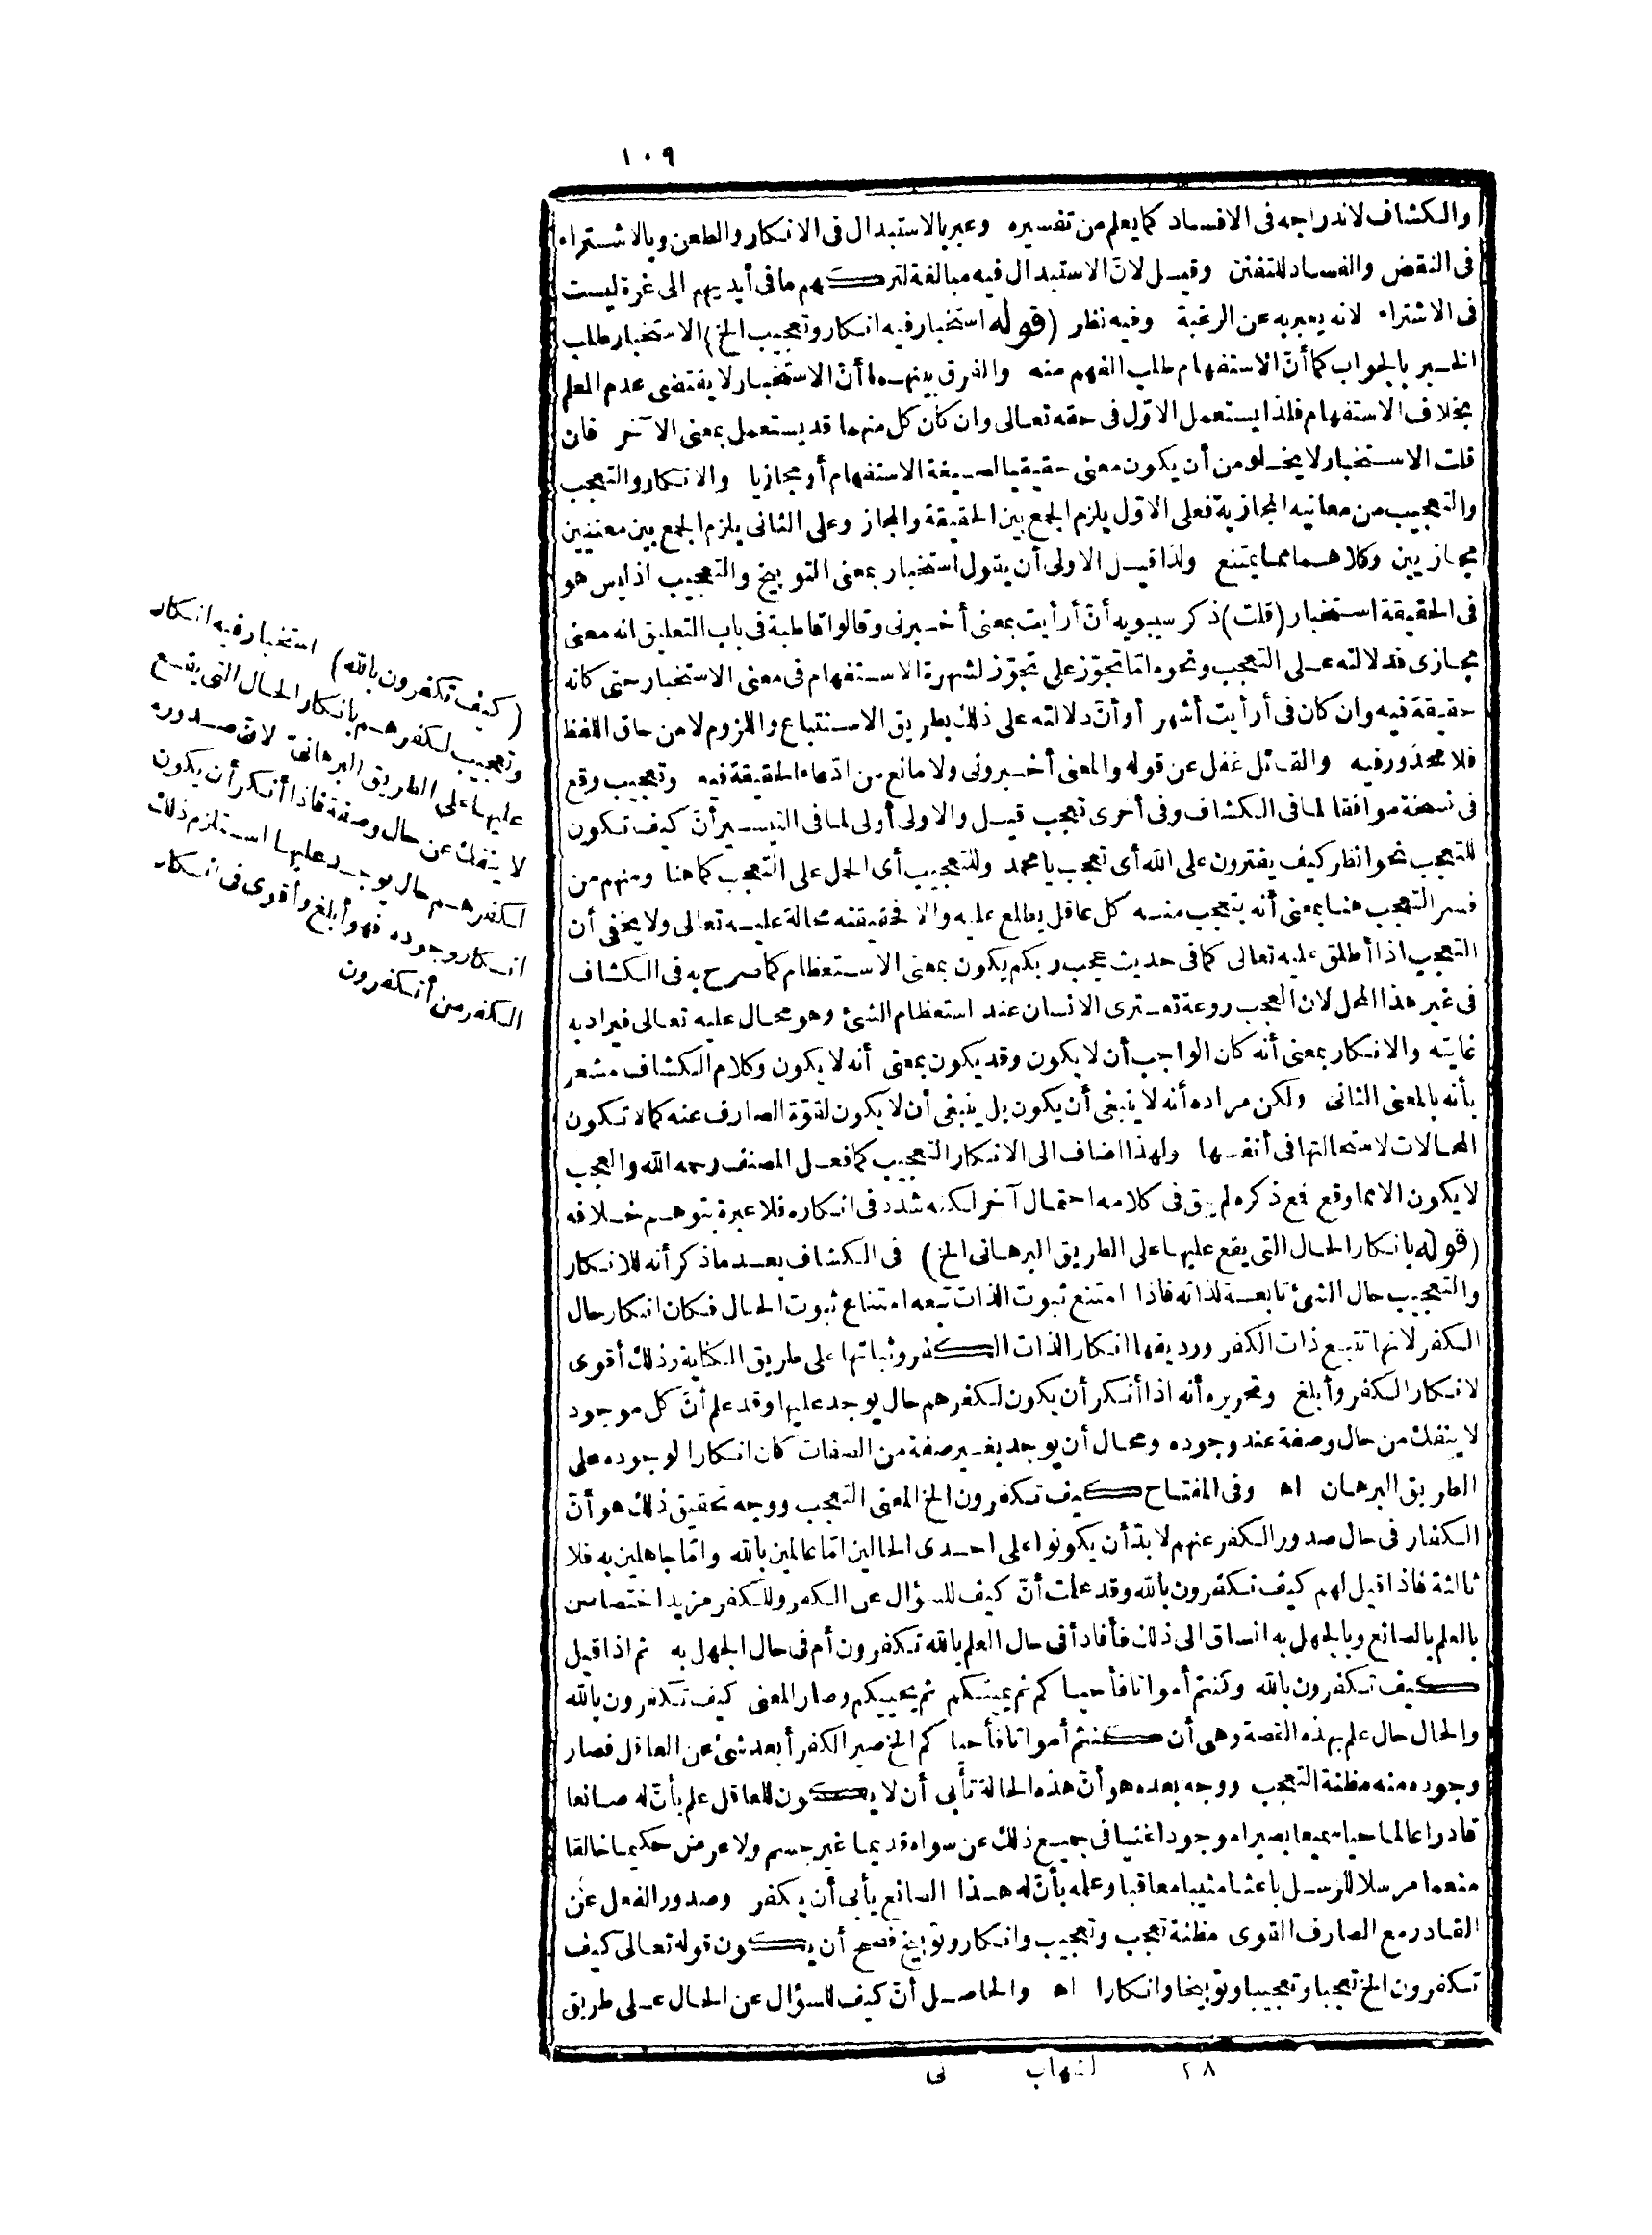 ١٠٩
والكشاف لاندراجه فى الافساد كما يعلم من تفسيره وعبر بالاستبدال فى الانكار والطعن وبالاشتراء
فى النقض والفساد للتفنن وقيل لانّ الاستبدال فيه مبالغة لتركهم ما فى أيديهم الى غرة ليست
فى الاشتراء لانه يعبر به عن الرغبة وفيه نظر (قوله استخبار فيه انكار وتعجيب الخ) الاستخبار طلب
الخبر بالجواب كما أنّ الاستفهام طلب الفهم منه والفرق بينهما أنّ الاستخبار لا يقتضى عدم العلم
بخلاف الاستفهام فلذا يستعمل الاوّل فى حقه تعالى وان كان كل منهما قد يستعمل بمعنى الآخر فان
قلت الاستخبار لا يخلو من أن يكون معنى حقيقيا لصيغة الاستفهام أو مجازيا والانكار والتعجب
والتعجيب من معانيه المجازية فعلى الاوّل يلزم الجمع بين الحقيقة والمجاز وعلى الثانى يلزم الجمع بين معنيين
مجازيين وكلاهما مما يمتنع ولذا قيل الاولى أن يقول استخبار بمعنى التوبيخ والتعجيب اذ ليس هو
فى الحقيقة استخبار (قلت) ذكر سيبويه أنّ أرأيت بمعنى أخبرنى وقالوا قاطبة فى باب التعليق انه معنى
مجازى فدلالته على التعجب ونحوه امّا تجوّز على تجوّز لشهرة الاستفهام فى معنى الاستخبار حتى كانه
حقيقة فيه وان كان فى أرأيت أشهر أو أنّ دلالته على ذلك بطريق الاستتباع واللزوم لا من حاق اللفظ
فلا محذور فيه والقائل غفل عن قوله والمعنى أخبرونى ولا مانع من ادّعاء الحقيقة فيه وتعجيب وقع
فى نسخة موافقا لما فى الكشاف وفى أخرى تعجب قيل والاولى أولى لما فى التيسير أنّ كيف تكون
للتعجب نحو انظر كيف يفترون على الله أى تعجب يا محمد وللتعجيب أى الحمل على التعجب كما هنا ومنهم من
فسر التعجب هنا بمعنى أنه يتعجب منه كل عاقل يطلع عليه والا فحقيقته محالة عليه تعالى ولا يخفى أن
التعجب اذا أطلق عليه تعالى كما فى حديث عجب ربكم يكون بمعنى الاستعظام كما صرح به فى الكشاف
فى غير هذا المحل لان العجب روعة تعترى الانسان عند استعظام الشئ وهو محال عليه تعالى فيراد به
غايته والانكار بمعنى أنه كان الواجب أن لا يكون وقد يكون بمعنى أنه لا يكون وكلام الكشاف مشعر
بأنه بالمعنى الثانى ولكن مراده أنه لا ينبغى أن يكون بل ينبغى أن لا يكون لقوّة الصارف عنه كما لا تكون
المحالات لاستحالتها فى أنفسها ولهذا اضاف الى الانكار التعجيب كما فعل المصنف رحمه الله والعجب
لا يكون الا مما وقع فمع ذكره لم يبق فى كلامه احتمال آخر لكنه شدد فى انكاره فلا عبرة بتوهم خلافه
(قوله بانكار الحال التى يقع عليها على الطريق البرهانى الخ) فى الكشاف بعد ما ذكر أنه للانكار
والتعجيب حال الشئ تابعة لذاته فاذا امتنع ثبوت الذات تبعه امتناع ثبوت الحال فكان انكار حال
الكفر لانها تتبع ذات الكفر ورديفها انكار الذات الكفر وثباتها على طريق الكناية وذلك أقوى
لانكار الكفر وأبلغ وتحريره أنه اذا أنكر أن يكون لكفرهم حال يوجد عليها وقد علم أنّ كل موجود
لا ينفك من حال وصفة عند وجوده ومحال أن يوجد بغير صفة من الصفات كان انكارا لوجوده على
الطريق البرهان اه وفى المفتاح كيف تكفرون الخ المعنى التعجب ووجه تحقيق ذلك هو أنّ
الكفار فى حال صدور الكفر عنهم لا بدّ أن يكونوا على احدى الحالين امّا عالمين بالله وامّا جاهلين به فلا
ثالثة فاذا قيل لهم كيف تكفرون بالله وقد علمت أنّ كيف للسؤال عن الكفر وللكفر مزيد اختصاص
بالعلم بالصانع وبالجهل به انساق الى ذلك فأفاد أفى حال العلم بالله تكفرون أم فى حال الجهل به ثم اذا قيل
كيف تكفرون بالله وكنتم أمواتا فأحياكم ثم يميتكم ثم يحييكم وصار المعنى كيف تكفرون بالله
والحال حال علم بهذه القصة وهى أن كنتم أمواتا فأحياكم الخ صير الكفر أبعد شئ عن العاقل فصار
وجوده منه مظنة التعجب ووجه بعده هو أنّ هذه الحالة تأبى أن لا يكون للعاقل علم بأنّ له صانعا
قادرا عالما حيا سميعا بصيرا موجودا غنيا فى جميع ذلك عن سواه قديما غير جسم ولا عرض حكيما خالقا
منعما مرسلا للرسل باعثا مثيبا معاقبا وعلمه بأنّ له هذا الصانع يأبى أن يكفر وصدور الفعل عن
القادر مع الصارف القوى مظنة تعجب وتعجيب وانكار وتوبيخ فصح أن يكون قوله تعالى كيف
تكفرون الخ تعجبا وتعجيبا وتوبيخا وانكارا اه والحاصل أنّ كيف للسؤال عن الحال على طريق
(كيف تكفرون بالله) استخبار فيه انكار
وتعجيب لكفرهم بانكار الحال التى يقع
عليها على الطريق البرهانىّ لانّ صدوره
لا ينفك عن حال وصفة فاذا أنكر أن يكون
لكفرهم حال يوجد عليها استلزم ذلك
انكار وجوده فهو أبلغ وأقوى فى انكار
الكفر من أتكفرون
٢٨ شهاب نى